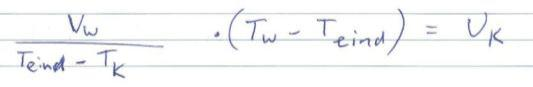 V_w / (T_eind - T_K) · (T_w - T_eind) = V_K